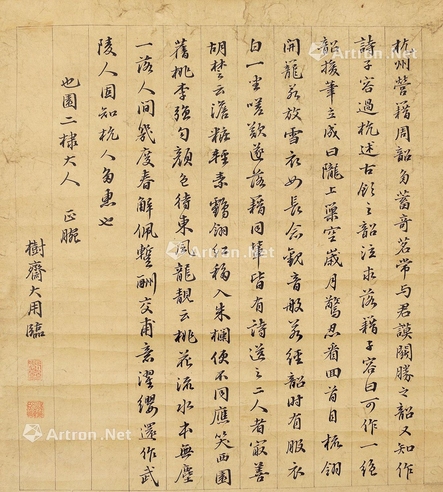 杭州營籍周韶多蓄奇茗常与君謨鬪勝之韶又知作
詩子容過杭述古飲之韶泣求落籍子容曰可作一絕
韶援筆立成曰隴上巢空歲月驚忍看回首自梳翎
開籠若放雪衣女長念觀音般若經韶时有服衣
白一坐嗟歎遂落籍同輩皆有詩送之二人者最善
胡楚云澹粧輕素鶴翎紅移入朱欄便不同應笑西園
舊桃李強匀顏色待東風龍靚云桃花流水本無塵
一落人間幾度春解佩蹔酬交甫意濯纓還作武
陵人固知杭人多惠也
也園二棣大人 正腕
樹齋大用臨
Artron.Net
Artron.Net
Artron.Net
Artron.Net